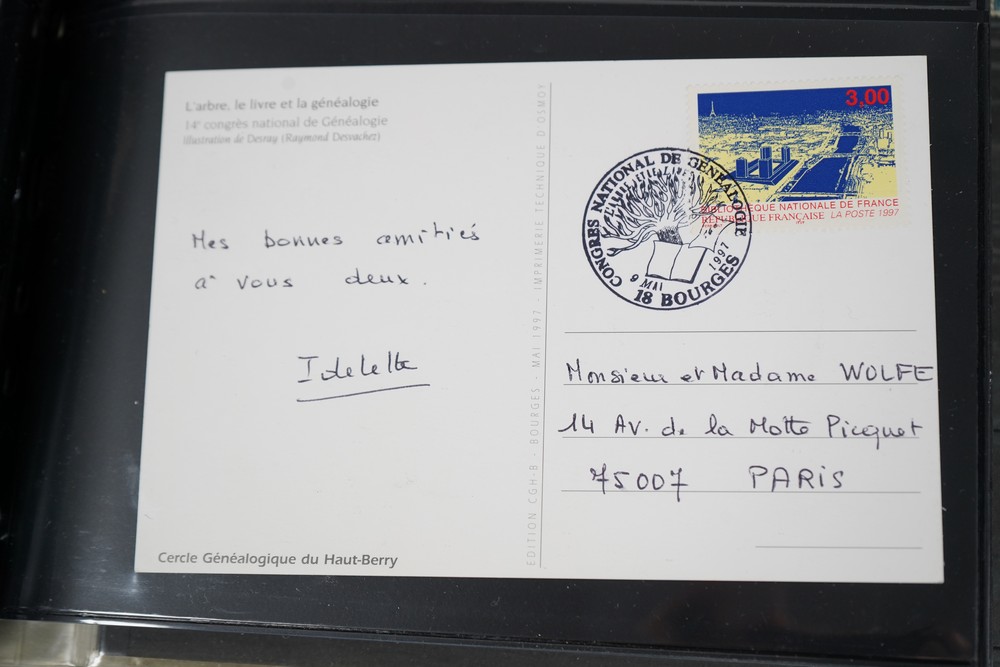 L'arbre, le livre et la généalogie
14e congrès national de Généalogie
Illustration de Desray (Raymond Desvachez)
Mes bonnes amitiés
à vous deux.
Idelette
Cercle Généalogique du Haut-Berry
EDITION CGH-B - BOURGES - MAI 1997 - IMPRIMERIE TECHNIQUE D'OSMOY
3,00
BIBLIOTHEQUE NATIONALE DE FRANCE
RÉPUBLIQUE FRANÇAISE LA POSTE 1997
CONGRES NATIONAL DE GÉNÉALOGIE
9 MAI 1997
18 BOURGES
Monsieur et Madame WOLFE
14 Av. de la Motte Picquet
75007 PARIS